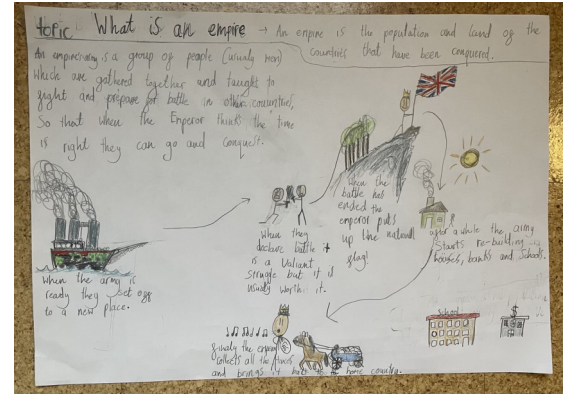 topic What is an empire → An empire is the population and land of the
countries that have been conquered.
An empire army is a group of people (usualy men)
which are gathered together and taught to
fight and prepare for battle in other countries,
So that when the Emperor thinks the time
is right they can go and conquest.
when the army is
ready they set off
to a new place.
When they
declare battle it
is a valiant
struggle but it is
usualy worth it.
when the
battle has
ended the
emperor puts
up the national
flag!
after a while the army
starts re-building
houses, banks and schools.
School
$
finaly the emperor
collects all the
and brings it back to the home country.